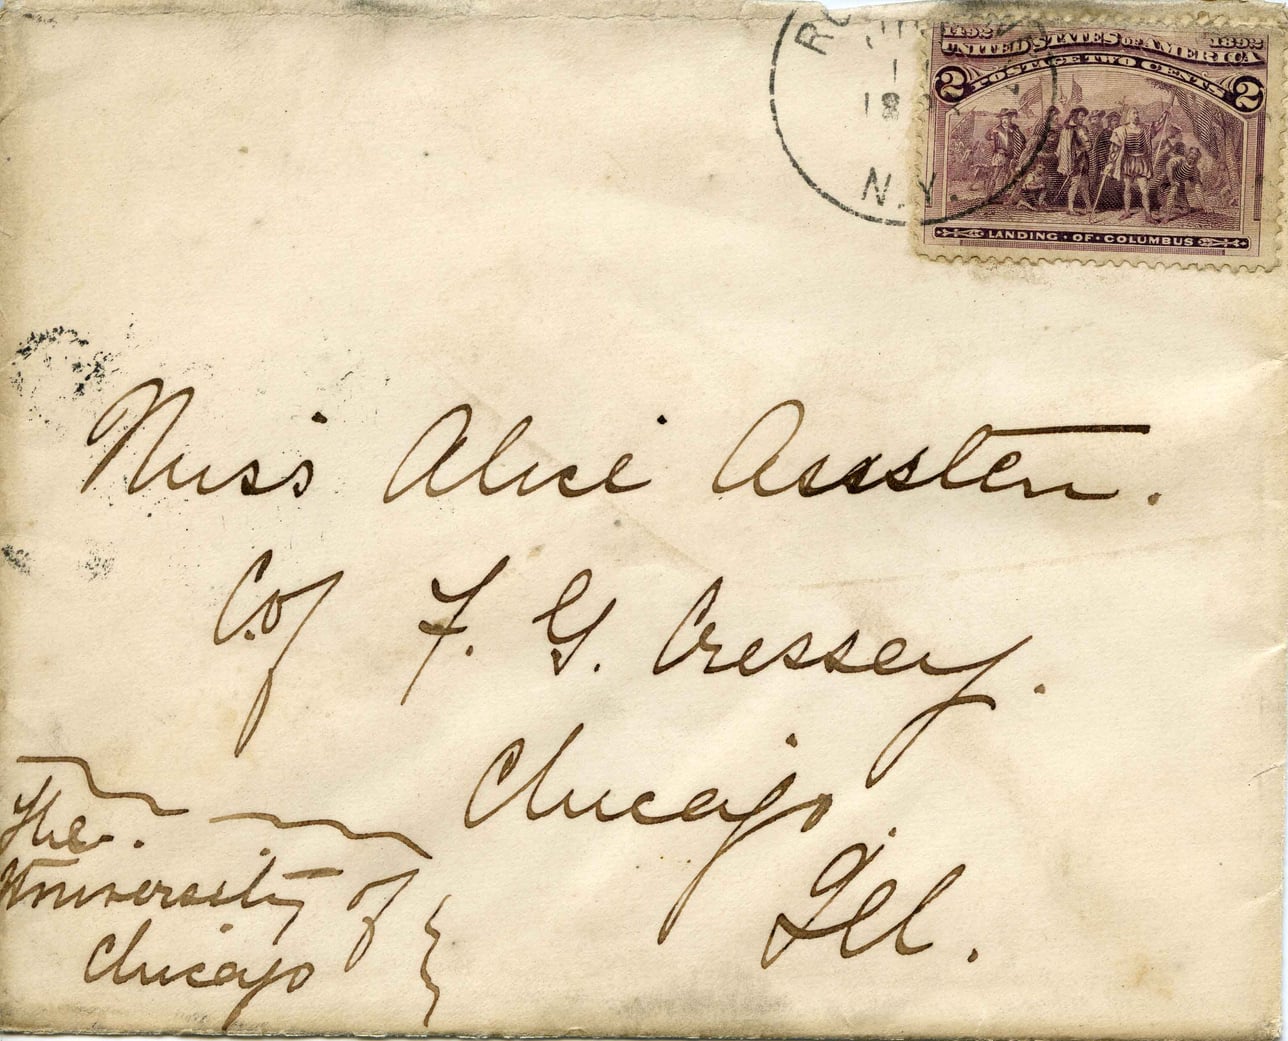 N.Y.
1492 1892
UNITED STATES OF AMERICA
POSTAGE TWO CENTS
2 2
LANDING · OF · COLUMBUS
Miss Alice
C.of F. G. Cressey.
Chicago.
Ill.
The.
University of
Chicago